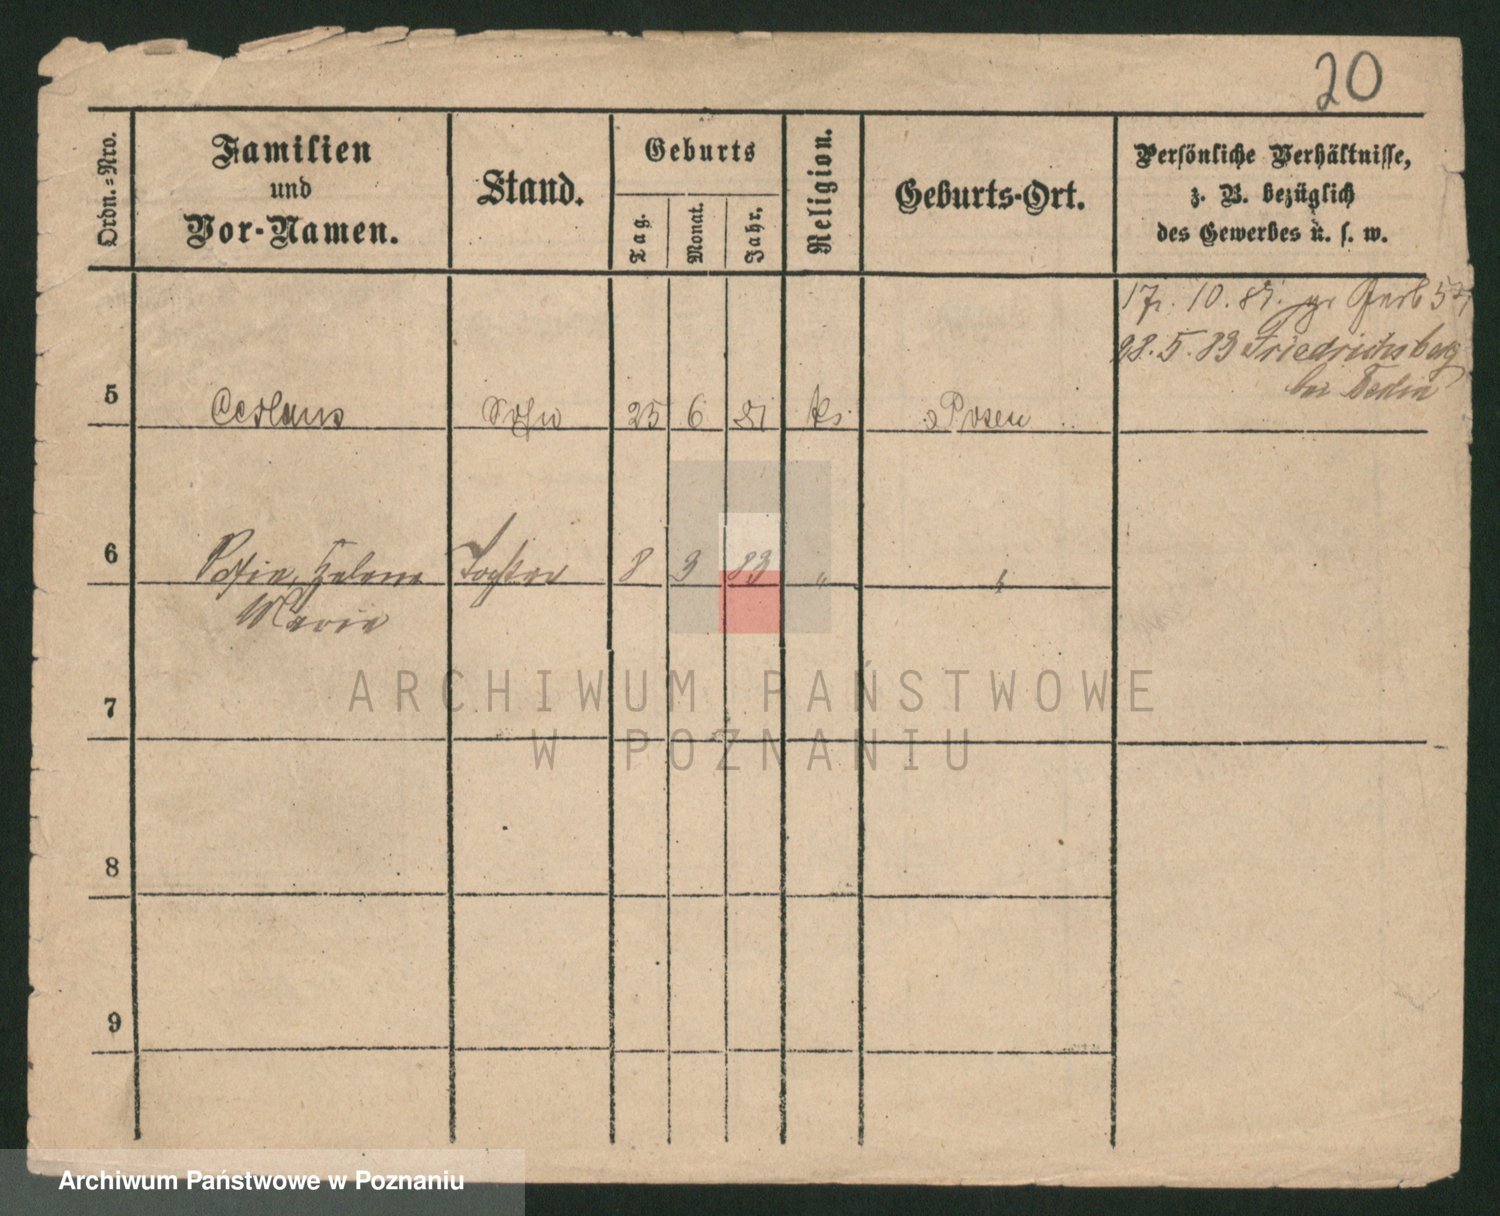 20
Ordn.=Nro.
Familien
und
Vor-Namen.
Stand.
Geburts
Tag.
Monat.
Jahr.
Religion.
Geburts-Ort.
Persönliche Verhältnisse,
z. B. bezüglich
des Gewerbes u. s. w.
17. 10. 81.
28. 5. 83 Friedrichsberg
bei
5 Ceslaus Sohn 25 6 81 k. Posen
6 Helena Tochter 8 3 83 "
Marie
7
8
9
ARCHIWUM PAŃSTWOWE
W POZNANIU
Archiwum Państwowe w Poznaniu